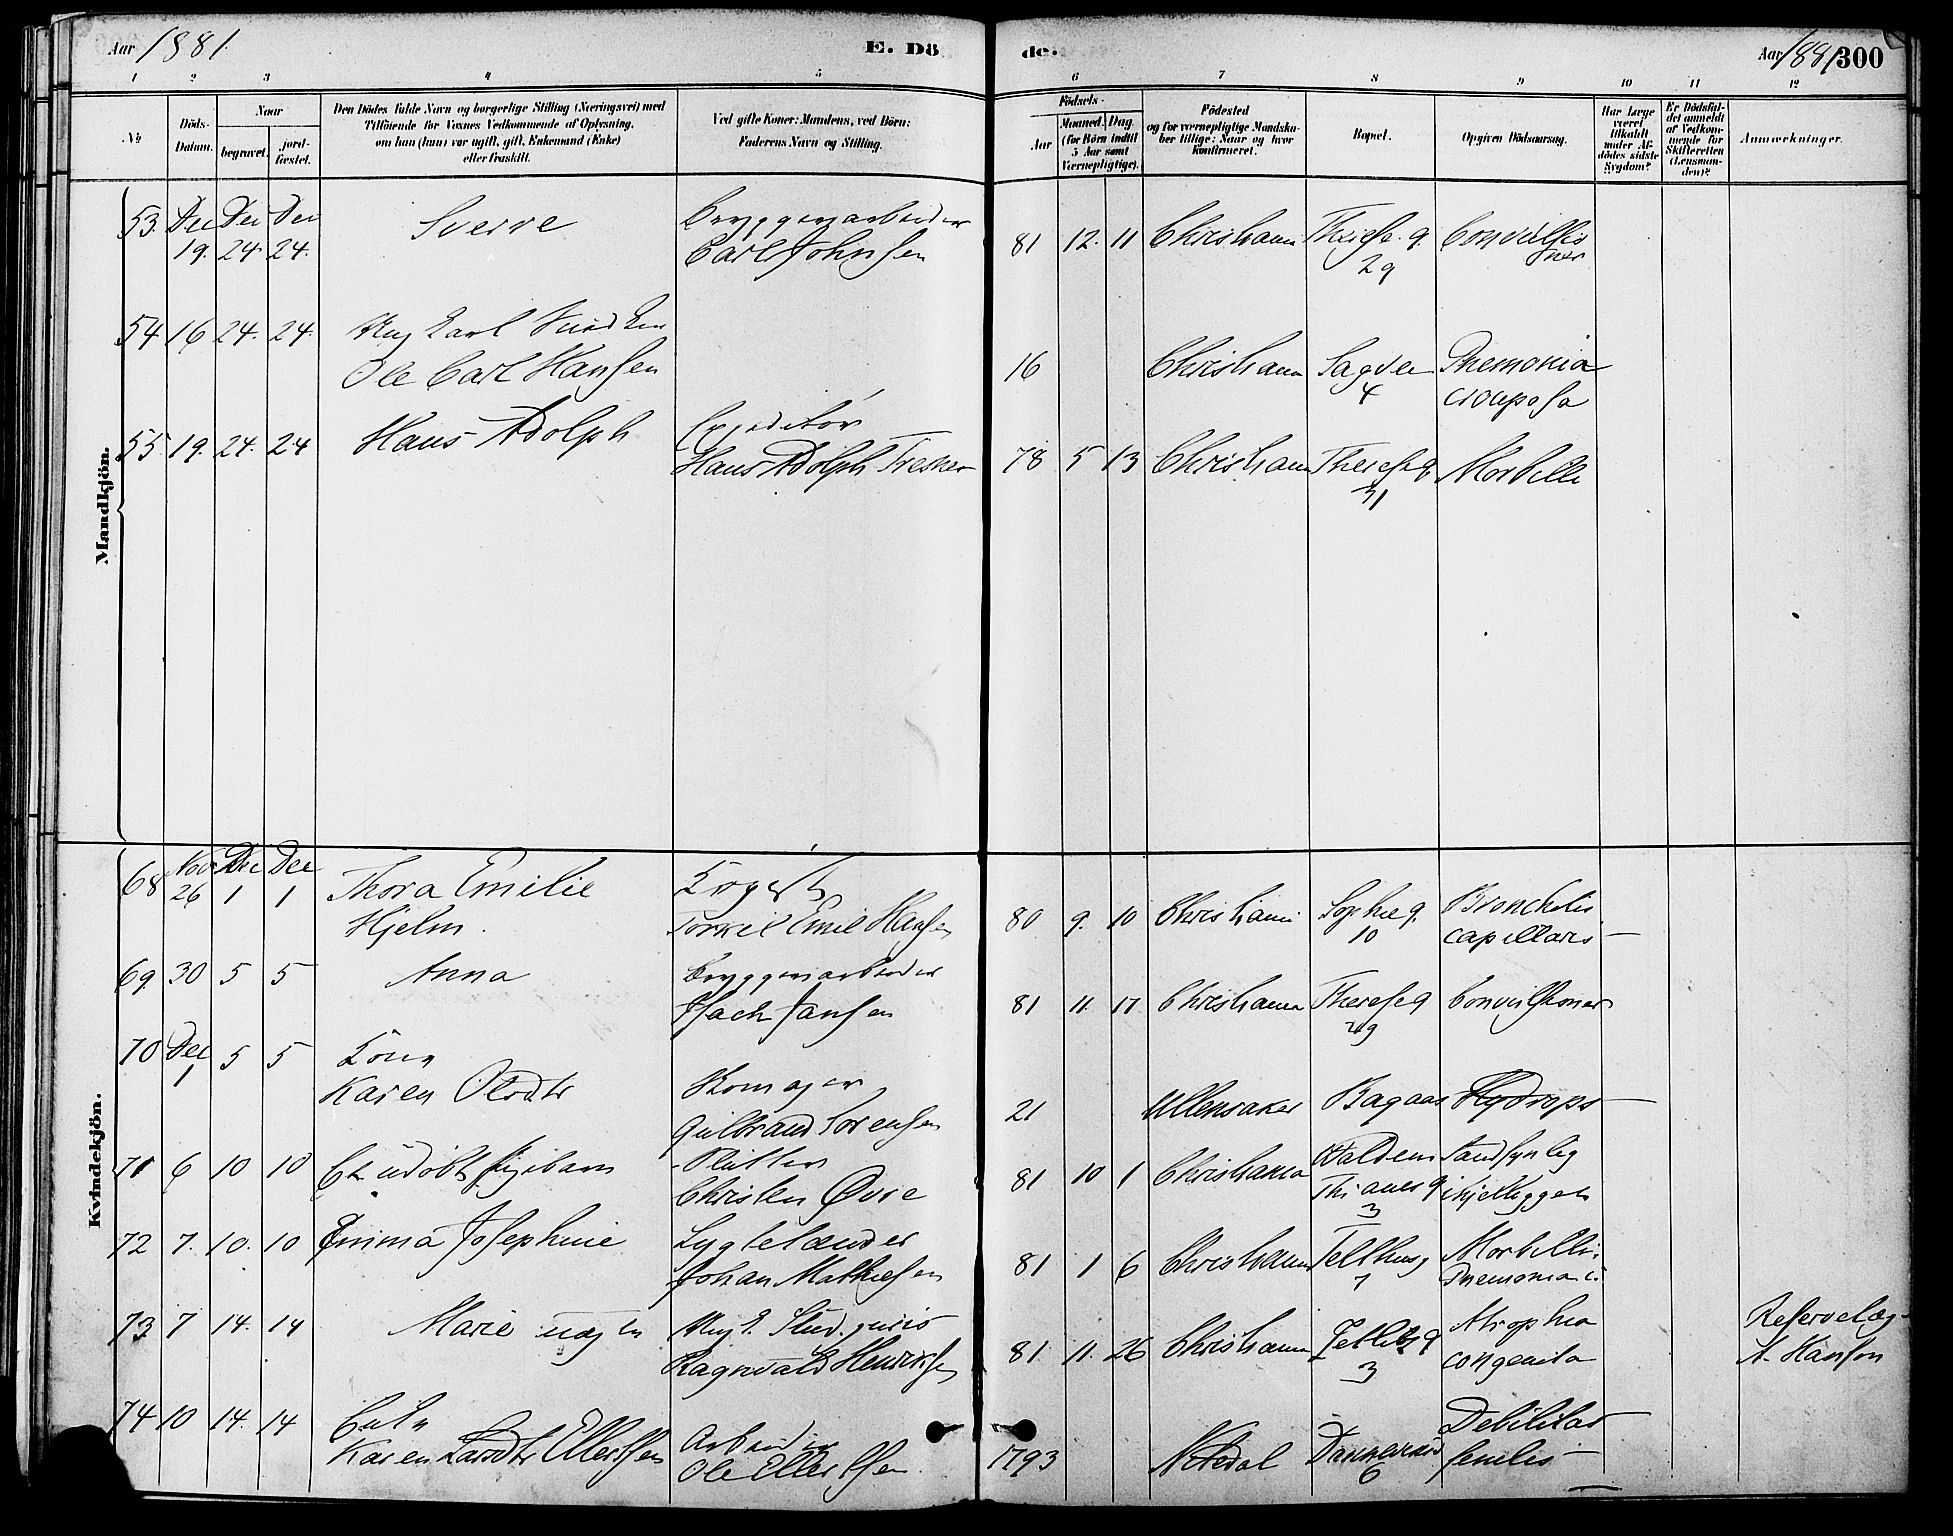 Aar 1881.
E. Dö
de.
Aar 1881
300
1 2 3 4 5 6 7 8 9 10 11 12
No
Döds-
Datum.
Naar
begravet.
jord-
fæstet.
Den Dödes fulde Navn og borgerlige Stilling (Næringsvei) med
Tilföiende for Voxnes Vedkommende af Oplysning,
om han (hun) var ugift, gift, Enkemand (Enke)
eller fraskilt.
Ved gifte Koner: Mandens, ved Börn:
Faderens Navn og Stilling.
Födsels-
Aar
Maaned. Dag.
(for Börn indtil
5 Aar samt
Værnepligtige).
Födested
og for værnepligtige Mandska-
ber tillige: Naar og hvor
konfirmeret.
Bopæl.
Opgiven Dödsaarsag.
Har Læge
været
tilkaldt
under Af-
dödes sidste
Sygdom?
Er Dödsfal-
det anmeldt
af Vedkom-
mende for
Skifteretten
(Lensman-
den)?
Anmærkninger.
Mandkjön.
53 Dec 19. Dec 24 Dec 24.
Sverre
Bryggeriarbeider
Carl Johnsen
81 12. 11 Christiania Theresesg. 29 Convulsioner
54 16 24. 24.
Ole Carl Hansen
16 Christiania Sagvei 4 Pnemonia
crouposa
55 19. 24. 24
Hans Adolph
Expeditör
Hans Adolph Tresker
78 5 13 Christiania Theresesg. 31 Morbilli
Kvindekjön.
68 Nov 26 Dec 1 Dec 1
Thora Emilie
Hjelm.
Torkel Emil Hansen
80 9. 10 Christiania Sophieg. 10 Bronchitis
capillaris
69 30 5 5
Anna
Bryggeriarbeider
Isach Jansen
81 11. 17 Christiania Theresesg 29 Convulsioner
70 Dec 1 5 5
Kone
Karen Olsdtr
Skomager
Gulbrand Sorensen
21 Ullensaker Bagaas Hydrops
71 6 10 10
Et udöbt Pigebarn
Christen Øvre
81 10 1 Christiania Waldemar
Thranes g 3
Sandsynlig
ihjelligget
72 7. 10. 10
Emma Josephine
Lygtetænder
Johan Mathiesen
81 1 6 Christiania Telthusg 7 Morbilli.
Pnemonia
73 7 14. 14
Marie uægte
Ung k. Stud. juris
Ragnvald Henriksen
81 11. 26 Christiania 3 Atrophia
congenita
Reservelæge
A. Hanson
74 10 14. 14
Enke
Karen Larsdtr Ellertsen
Arbeider
Ole Ellertsen
1793 Nitedal 6 Debilitas
senilis